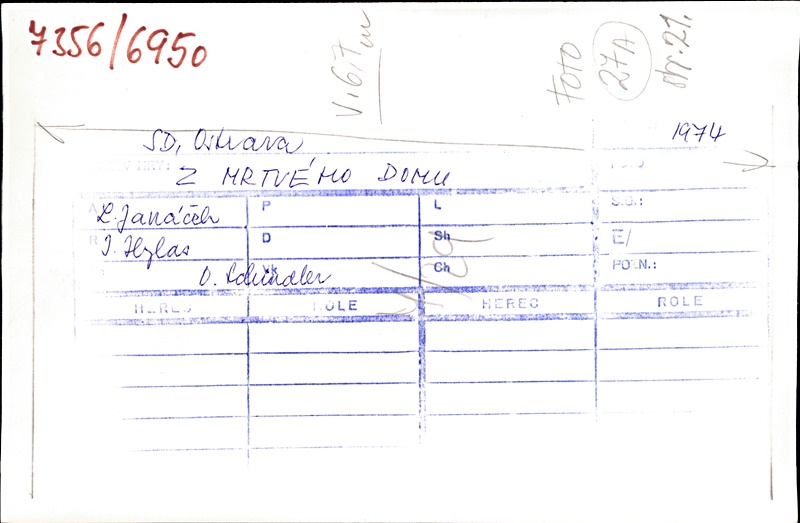 7356/6950
FOTO
27A
str. 21.
1974
SD, Ostrava
Z MRTVÉHO DOMU
L. Janáček P L S.G.:
I. Hylas D Sh E/
O. Schindler Ch POZN.:
HEREC ROLE HEREC ROLE